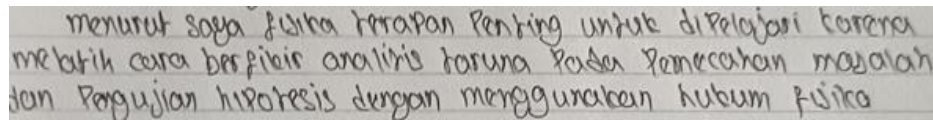 menurut saya fisika terapan Penting untuk dipelajari karena
melatih cara berfikir analitis taruna Pada Pemecahan masalah
dan Pengujian hipotesis dengan menggunakan hukum fisika